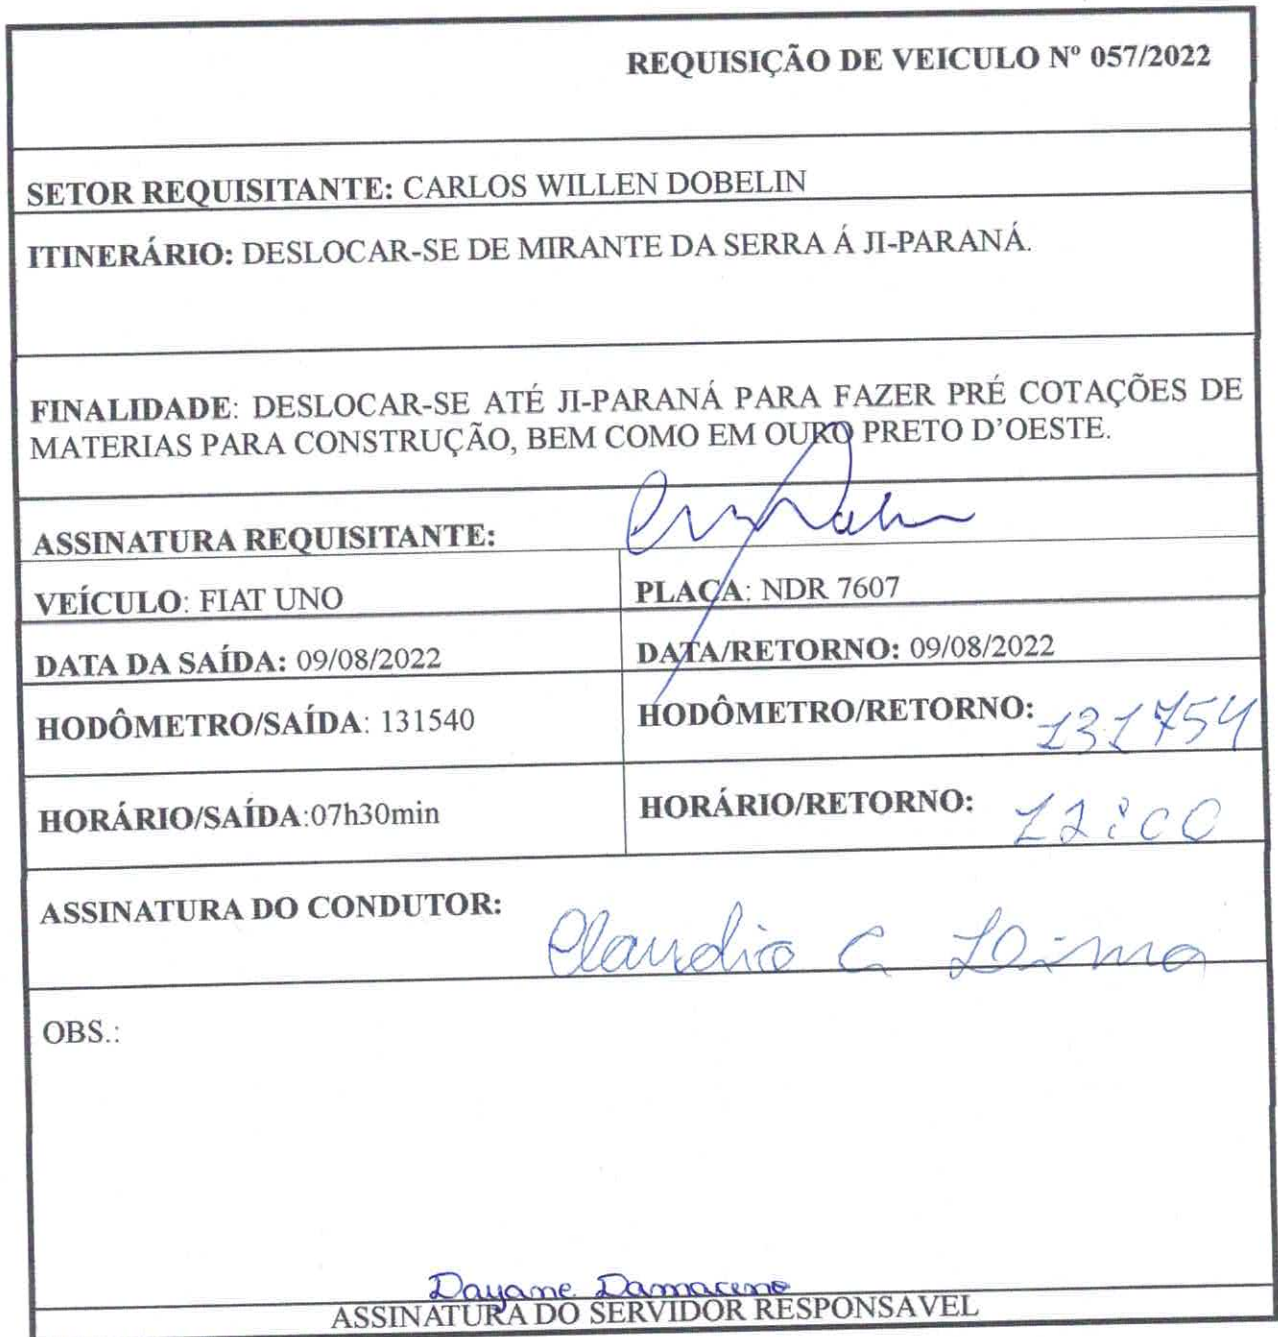 REQUISIÇÃO DE VEICULO Nº 057/2022
SETOR REQUISITANTE: CARLOS WILLEN DOBELIN
ITINERÁRIO: DESLOCAR-SE DE MIRANTE DA SERRA Á JI-PARANÁ.
FINALIDADE: DESLOCAR-SE ATÉ JI-PARANÁ PARA FAZER PRÉ COTAÇÕES DE
MATERIAS PARA CONSTRUÇÃO, BEM COMO EM OURO PRETO D'OESTE.
ASSINATURA REQUISITANTE:
VEÍCULO: FIAT UNO
PLACA: NDR 7607
DATA DA SAÍDA: 09/08/2022
DATA/RETORNO: 09/08/2022
HODÔMETRO/SAÍDA: 131540
HODÔMETRO/RETORNO: 131754
HORÁRIO/SAÍDA:07h30min
HORÁRIO/RETORNO:
ASSINATURA DO CONDUTOR: Claudio C
OBS.:
Dayane Damaceno
ASSINATURA DO SERVIDOR RESPONSAVEL